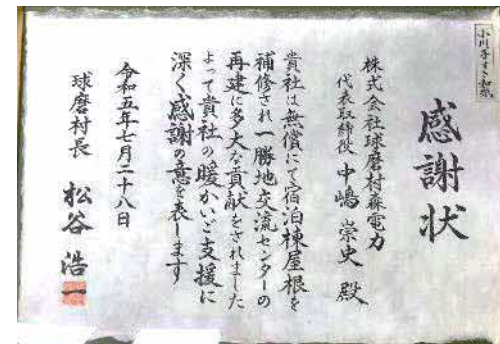 小川手すき和紙
感謝状
株式会社球磨村森電力
代表取締役 中嶋 崇史 殿
貴社は無償にて宿泊棟屋根を
補修され一勝地交流センターの
再建に多大な貢献をされました
よって貴社の暖かいご支援に
深く感謝の意を表します
令和五年七月二十八日
球磨村長 松谷 浩一